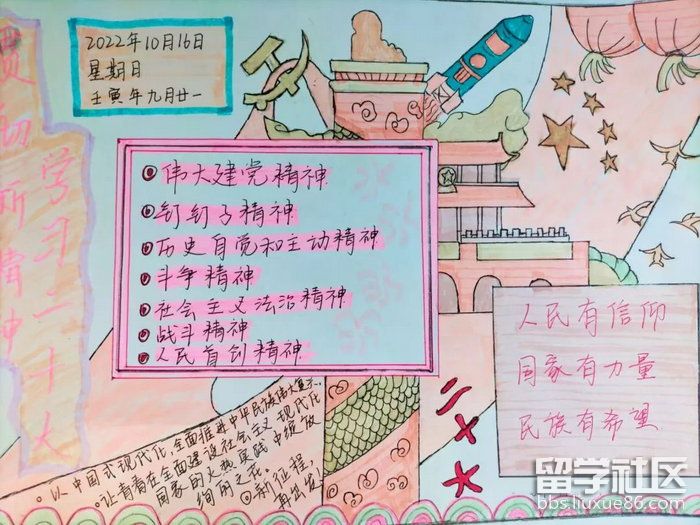 2022年10月16日
星期日
壬寅年九月廿一
贯彻新精神
学习二十大
伟大建党精神
钉钉子精神
历史自觉和主动精神
斗争精神
社会主义法治精神
战斗精神
人民首创精神
人民有信仰
国家有力量
民族有希望
二十大
以中国式现代化,全面推进中华民族伟大复兴...
让青春在全面建设社会主义现代化
国家的火热实践中绽放
绚丽之花。
新征程,
再出发!
留学社区
bbs.liuxue86.com